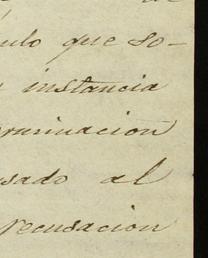 de
ulo que so-
instancia
erminacion
sado al
recusacion